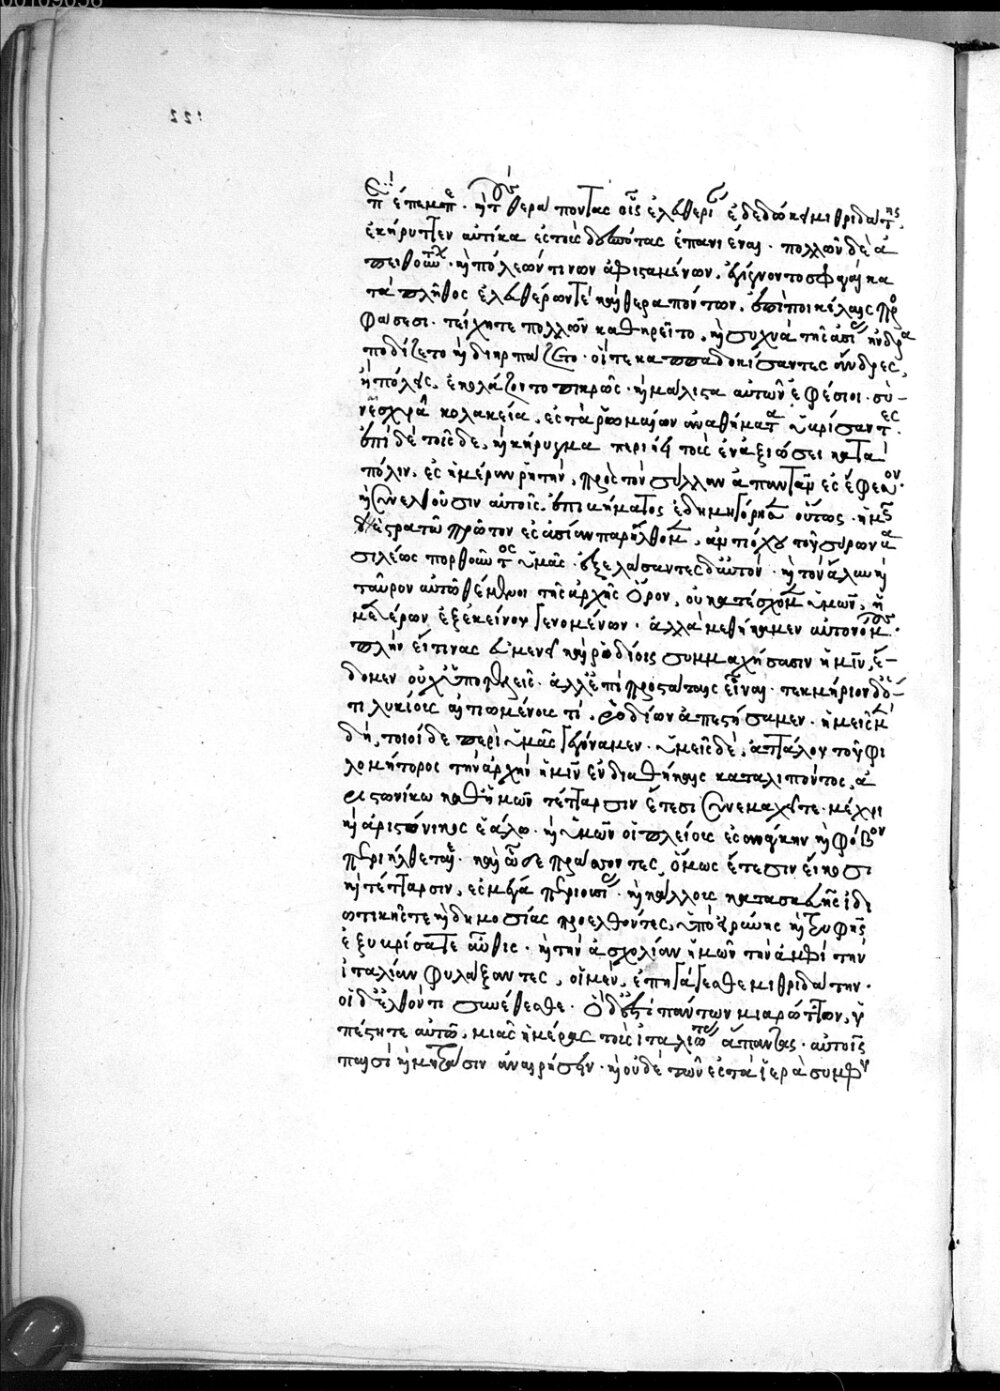 122
περιέπεμπε. καὶ τοὺς θεράποντας οἷς ἐλευθερίαν ἐδεδώκει μιθριδάτης,
ἐκήρυττεν αὐτίκα ἐς τοὺς δεσπότας ἐπανιέναι. πολλῶν δὲ ἀ
πειθούντων. καὶ πόλεών τινων ἀφισταμένων, ἐγίγνοντο σφαγαὶ κα
τὰ πλῆθος ἐλευθέρων τὲ καὶ θεραπόντων. ἐπὶ ποικίλαις προ
φάσεσι. τείχη τε πολλῶν καθηρεῖτο, καὶ συχνὰ τῆς ἀσίας ἠνδρα
ποδίζετο καὶ διηρπάζετο. οἵ τε καππαδοκίσαντες ἄνδρες,
ἢ πόλεις, ἐκολάζοντο πικρῶς. καὶ μάλιστα αὐτῶν ἐφέσιοι. σὺ-
ν αἰσχρᾶ κολακεία, ἐς τὰ ῥωμαίων ἀναθήματα ὑβρίσαντες.
ἐπὶ δὲ τοῖσδε, καὶ κήρυγμα περιήει τοὺς ἐν ἀξιώσει κατὰ
πόλιν, ἐς ἡμέραν ῥητὴν, πρὸς τὸν σύλλαν ἀπαντᾶν ἐς ἔφεσον.
καὶ συνελθοῦσιν αὐτοῖς, ἐπὶ βήματος ἐδημηγόρησεν οὕτως. ἡμεῖς
στρατῶ πρῶτον ἐς ἀσίαν παρήλθομεν, ἀντιόχου τοῦ σύρων βα
σιλέως πορθοῦντος ὑμᾶς. ἐξελάσαντες δ' αὐτὸν. καὶ τὸν ἅλυν καὶ
ταῦρον αὐτῶ θέμενοι τῆς ἀρχῆς ὅρον, οὐ κατέσχομεν ὑμῶν, ἡ
μετέρων ἐξ ἐκείνου γενομένων. ἀλλὰ μεθήκαμεν αὐτονόμους.
πλὴν εἴ τινας εὐμένει καὶ ῥοδίοις συμμαχήσασιν ἡμῖν, ἔ-
δομεν οὐχ ὑποτελεῖς. ἀλλ' ἐπὶ προστάταις εἶναι. τεκμήριον δὲ ὅ-
τι λυκίους αἰτιωμένους τὶ, ῥοδίων ἀπεστήσαμεν. ἡμεῖς μὲν
δὴ, τοιοίδε περὶ ὑμᾶς γεγόναμεν. ὑμεῖς δὲ, ἀττάλου τοῦ φι
λομήτορος τὴν ἀρχὴν ἡμῖν ἐν διαθήκαις καταλιπόντος, ἀ
ριστονίκω καθ' ἡμῶν τέτταρσιν ἔτεσι συνεμαχεῖτε. μέχρι
καὶ ἀριστόνικος ἑάλω. καὶ ὑμῶν οἱ πλείους ἐς ἀνάγκην καὶ φόβον
περιήλθετε. καὶ ὧδε πράσσοντες, ὅμως ἔτεσιν εἴκοσι
καὶ τέτταρσιν, ἐς μέγα περιουσίας καὶ κάλλους κατασκευῆς ἰδι
ωτικῆς τε καὶ δημοσίας προελθόντες, ὑπὸ εἰρήνης καὶ τρυφῆς
ἐξυβρίσατε αὖθις. καὶ τὴν ἀσχολίαν ἡμῶν τὴν ἀμφὶ τὴν
ἰταλίαν φυλάξαντες, οἱ μὲν, ἐπηγάγεσθε μιθριδάτην.
οἱ δ' ἐλθόντι συνέθεσθε. ὃ δ' ἐστὶ πάντων μιαρώτατον, ὑ
πέστητε αὐτῶ, μιᾶς ἡμέρας τοὺς ἰταλιώτας ἅπαντας. αὐτοῖς
παισὶ καὶ μητράσιν ἀναιρήσειν. καὶ οὐδὲ τῶν ἐς τὰ ἱερὰ συμφυ